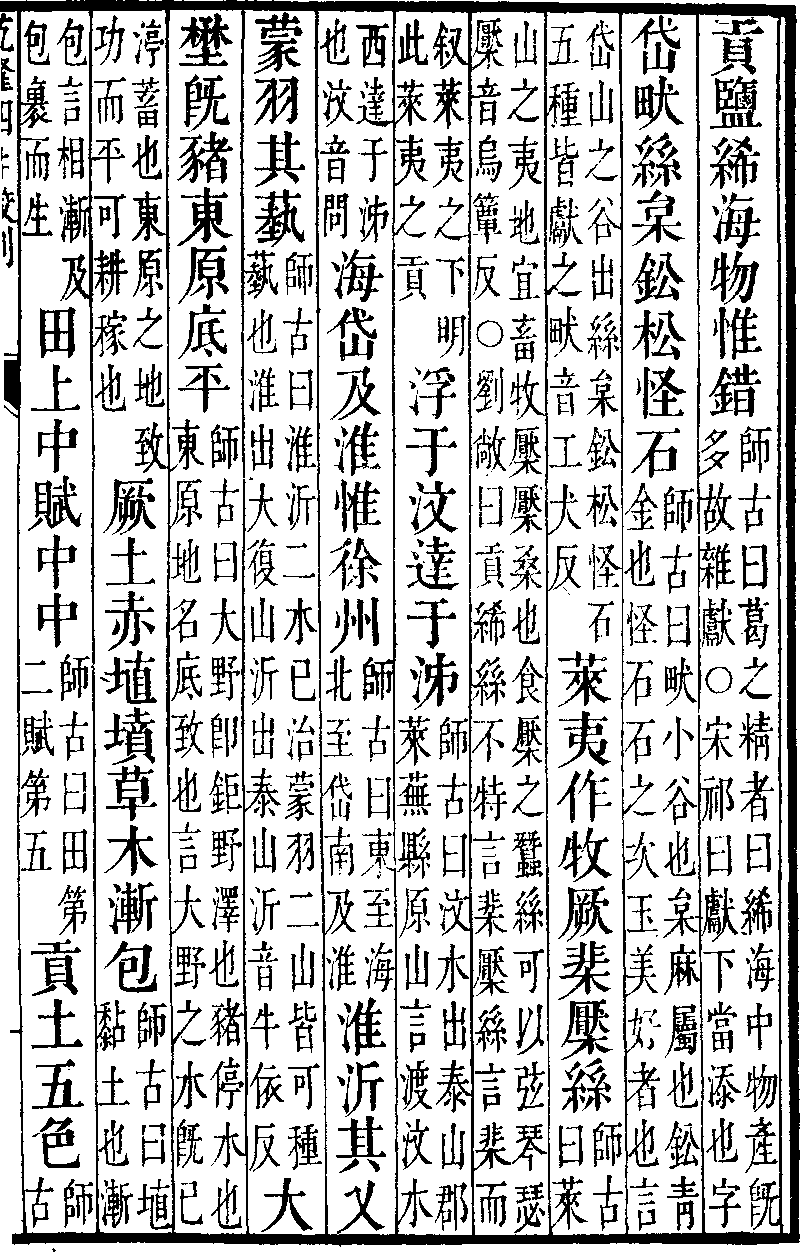 貢鹽絺海物惟錯師古曰葛之精者曰絺海中物產旣多故雜獻○宋祁曰獻下當添也字
岱畎絲枲鈆松怪石師古曰畎小谷也枲麻屬也鈆青金也怪石石之次玉美好者也言
岱山之谷出絲枲鈆松怪石五種皆獻之畎音工犬反萊夷作牧厥棐檿絲師古曰萊
山之夷地宜畜牧檿檿桑也食檿之蠶絲可以弦琴瑟檿音烏簟反○劉敞曰貢絺絲不特言棐檿絲言棐而
叙萊夷之下明此萊夷之貢浮于汶達于泲師古曰汶水出泰山郡萊蕪縣原山言渡汶水
西達于泲也汶音問海岱及淮惟徐州師古曰東至海北至岱南及淮淮沂其乂
蒙羽其蓺師古曰淮沂二水已治蒙羽二山皆可種蓺也淮出大復山沂出泰山沂音牛依反大
壄旣豬東原底平師古曰大野卽鉅野澤也豬停水也東原地名底致也言大野之水旣已
渟蓄也東原之地致功而平可耕稼也厥土赤埴墳草木漸包師古曰埴黏土也漸
包言相漸及包裹而生田上中賦中中師古曰田第二賦第五貢土五色師古